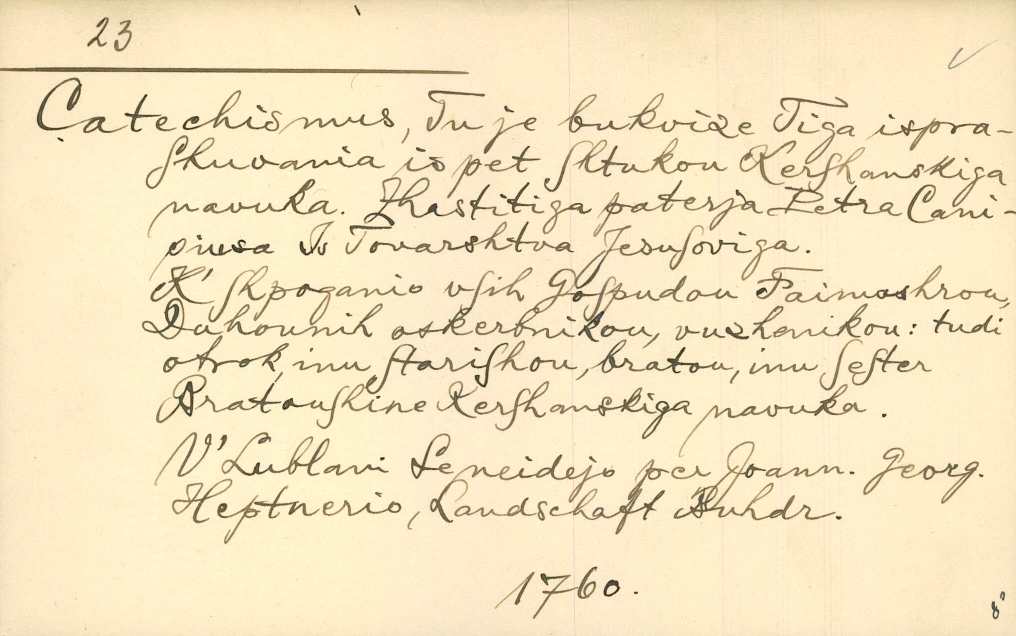 23
Catechismus, Tu je bukvize Tiga ispra-
ſhuvania is pet ſhtukou Kerſhanskiga
navuka. Zhastitiga paterja Petra Cani-
siusa Is Tovarshtva Jesuſoviga.
K' ſhpoganio vſih Goſpudou Faimashrou,
Duhounih oskerbnikou, vuzhenikou: tudi
otrok, inu ſtariſhou, bratou, inu ſeſter
Bratouſhine Kerſhanskiga navuka.
V' Lublani Se neidejo per Joann. Georg.
Heptnerio, Landschaft Buhdr.
1760.
8°